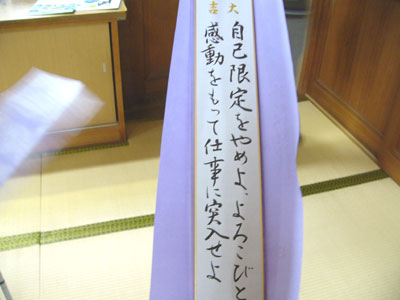 大吉
自己限定をやめよ、よろこびと
感動をもって仕事に突入せよ